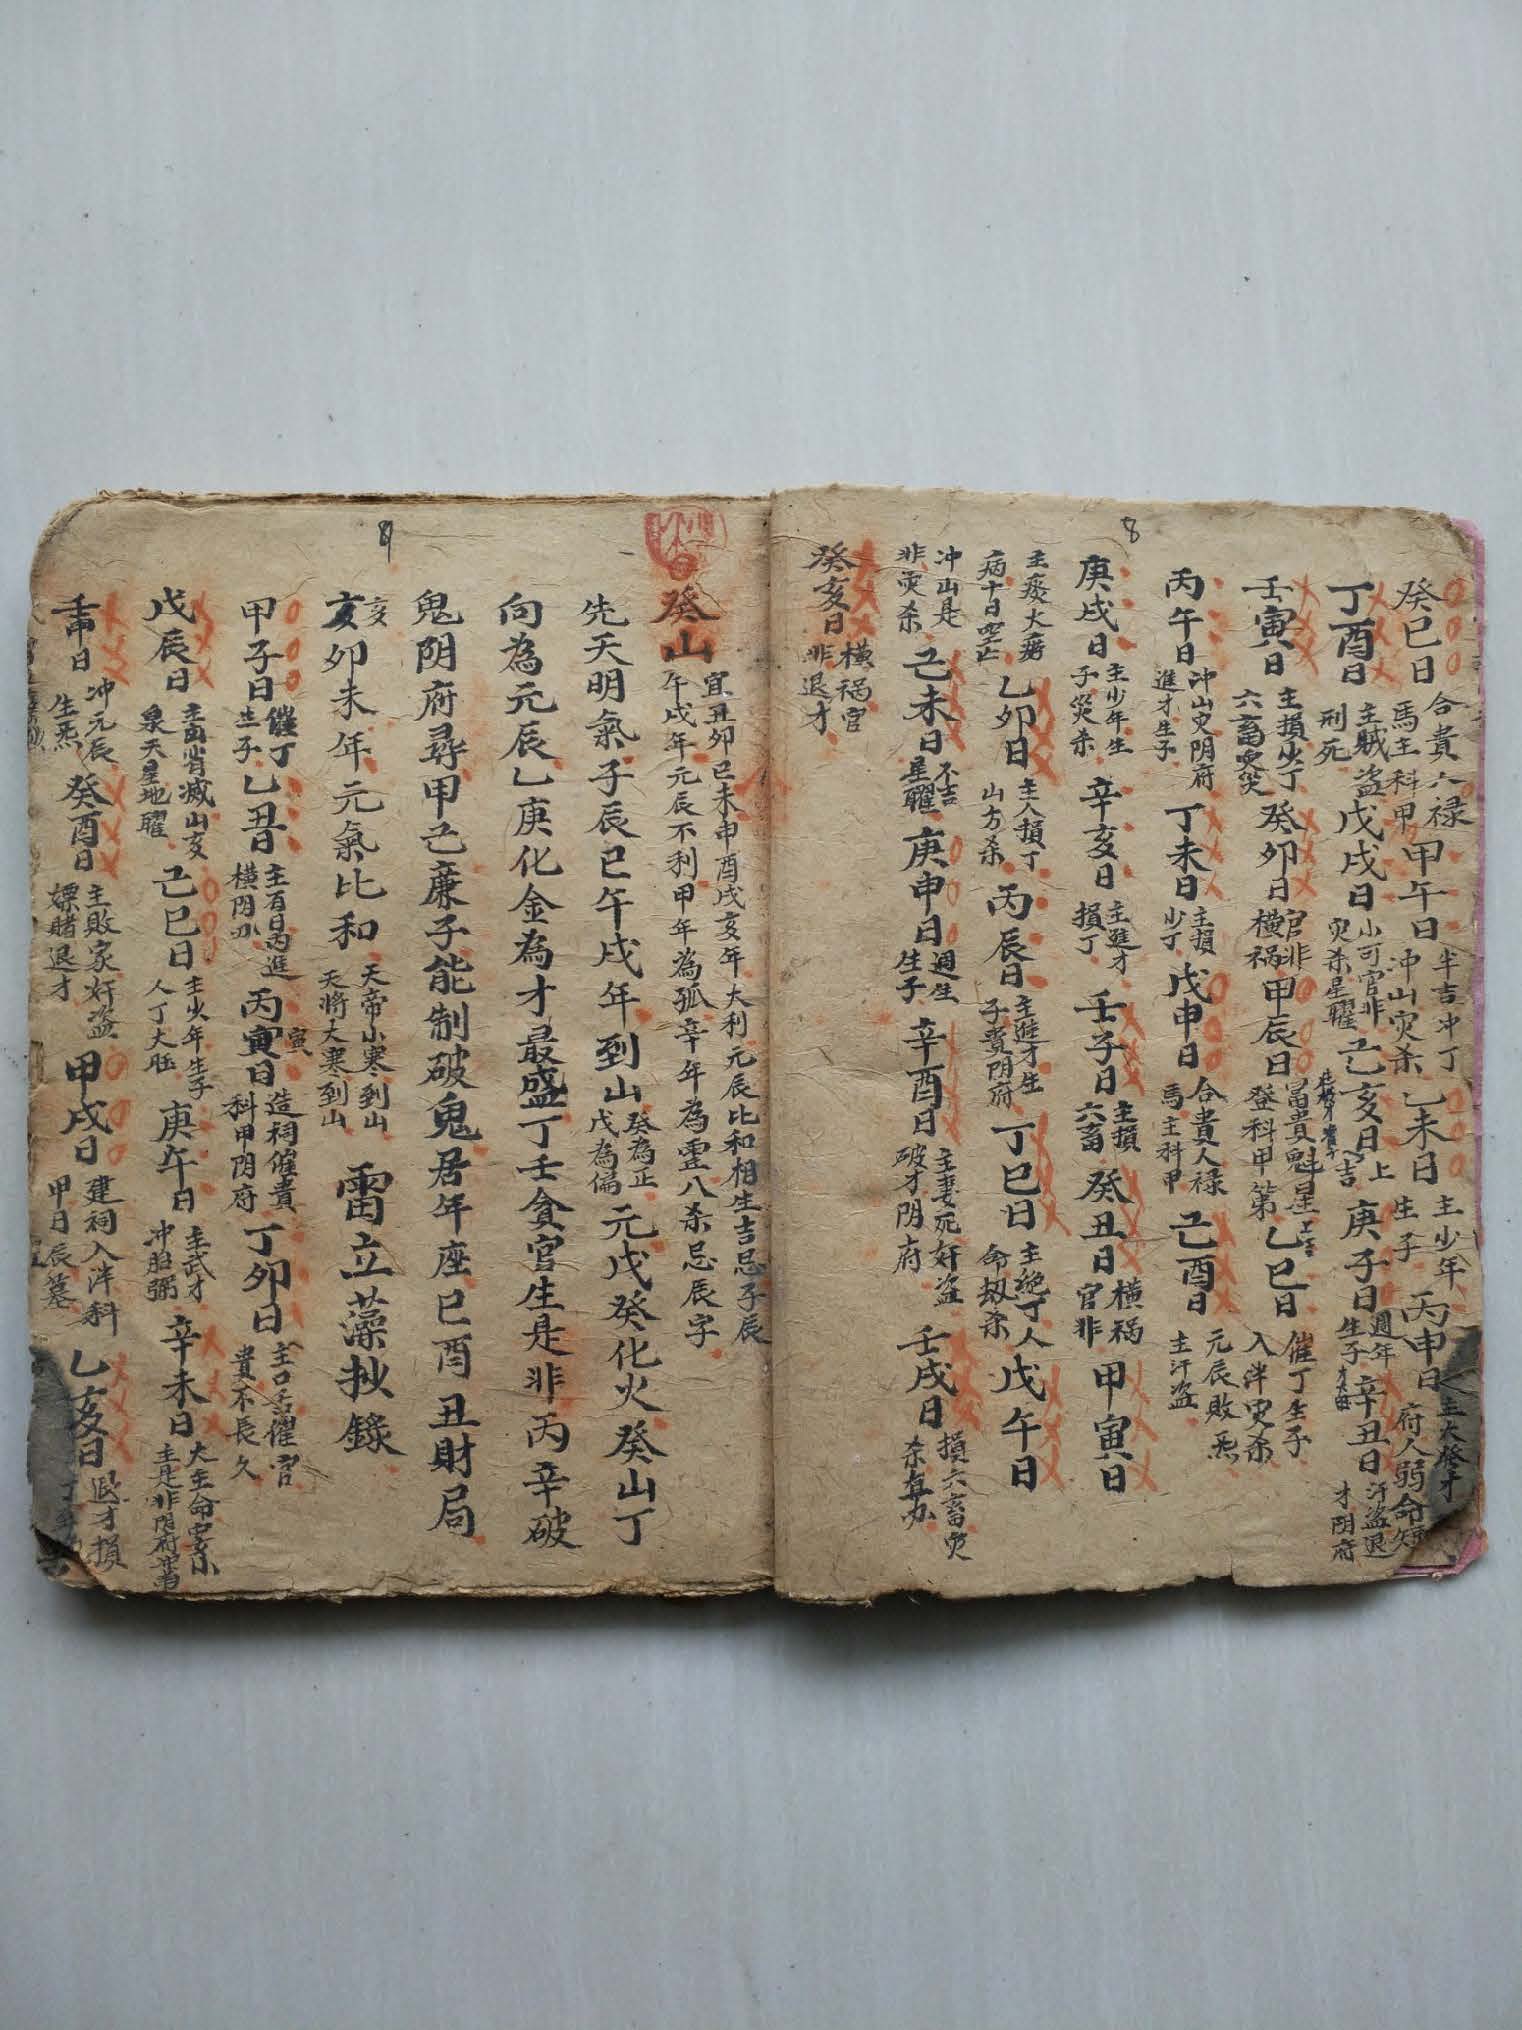 8
癸巳日 合貴六禄馬主科甲 甲午日 半吉冲丁冲山灾杀 乙未日 主少年生子 丙申日 主大發才府人弱命短
丁酉日 主贼盗刑死 戊戌日 小可官非灾杀星曜 己亥日 上吉 庚子日 週年生子 辛丑日 汗盗退才阴府
壬寅日 主損少丁六畜灾 癸卯日 官非横祸 甲辰日 冨貴魁星登科甲第 乙巳日 催丁生子入泮灾杀
丙午日 冲山灾阴府進才生子 丁未日 主損少丁 戊申日 合貴人禄馬主科甲 己酉日 元辰敗炁主汗盗
庚戌日 主少年生子災杀 辛亥日 主進才損丁 壬子日 主損六畜 癸丑日 横祸官非 甲寅日
主痰火癆病十日空亡 乙卯日 主人損丁山方杀 丙辰日 主進才生子貴阴府 丁巳日 主絶丁人命刼杀 戊午日
冲山是非灾杀 己未日 不吉星曜 庚申日 週年生子 辛酉日 主妻死奸盗破才阴府 壬戌日 損六畜灾杀
癸亥日 横祸官非退才
9
癸山 宜丑卯巳未申酉戌亥年大利元辰比和相生吉忌子辰午戌年元辰不利甲年為孤辛年為虚八杀忌辰字
先天明氣子辰巳午戌年到山 癸為正戊為偏 元戊癸化火癸山丁
向為元辰乙庚化金為才最盛丁壬貪官生是非丙辛破
鬼阴府尋甲己亷子能制破鬼居年座巳酉丑財局
亥卯未年元氣比和 天帝小寒到山天將大寒到山 雷立藻抄錄
甲子日 催丁生子 乙丑日 横阴 丙寅日 造祠催貴科甲阴府 丁卯日 主口舌催官貴不長久
戊辰日 泉天星地曜 己巳日 主少年生子人丁大旺 庚午日 主武才冲胎 辛未日 主是非阴府
壬申日 冲元辰生炁 癸酉日 主敗家奸盗嫖赌退才 甲戌日 建祠入泮科甲日辰墓 乙亥日 退才損丁